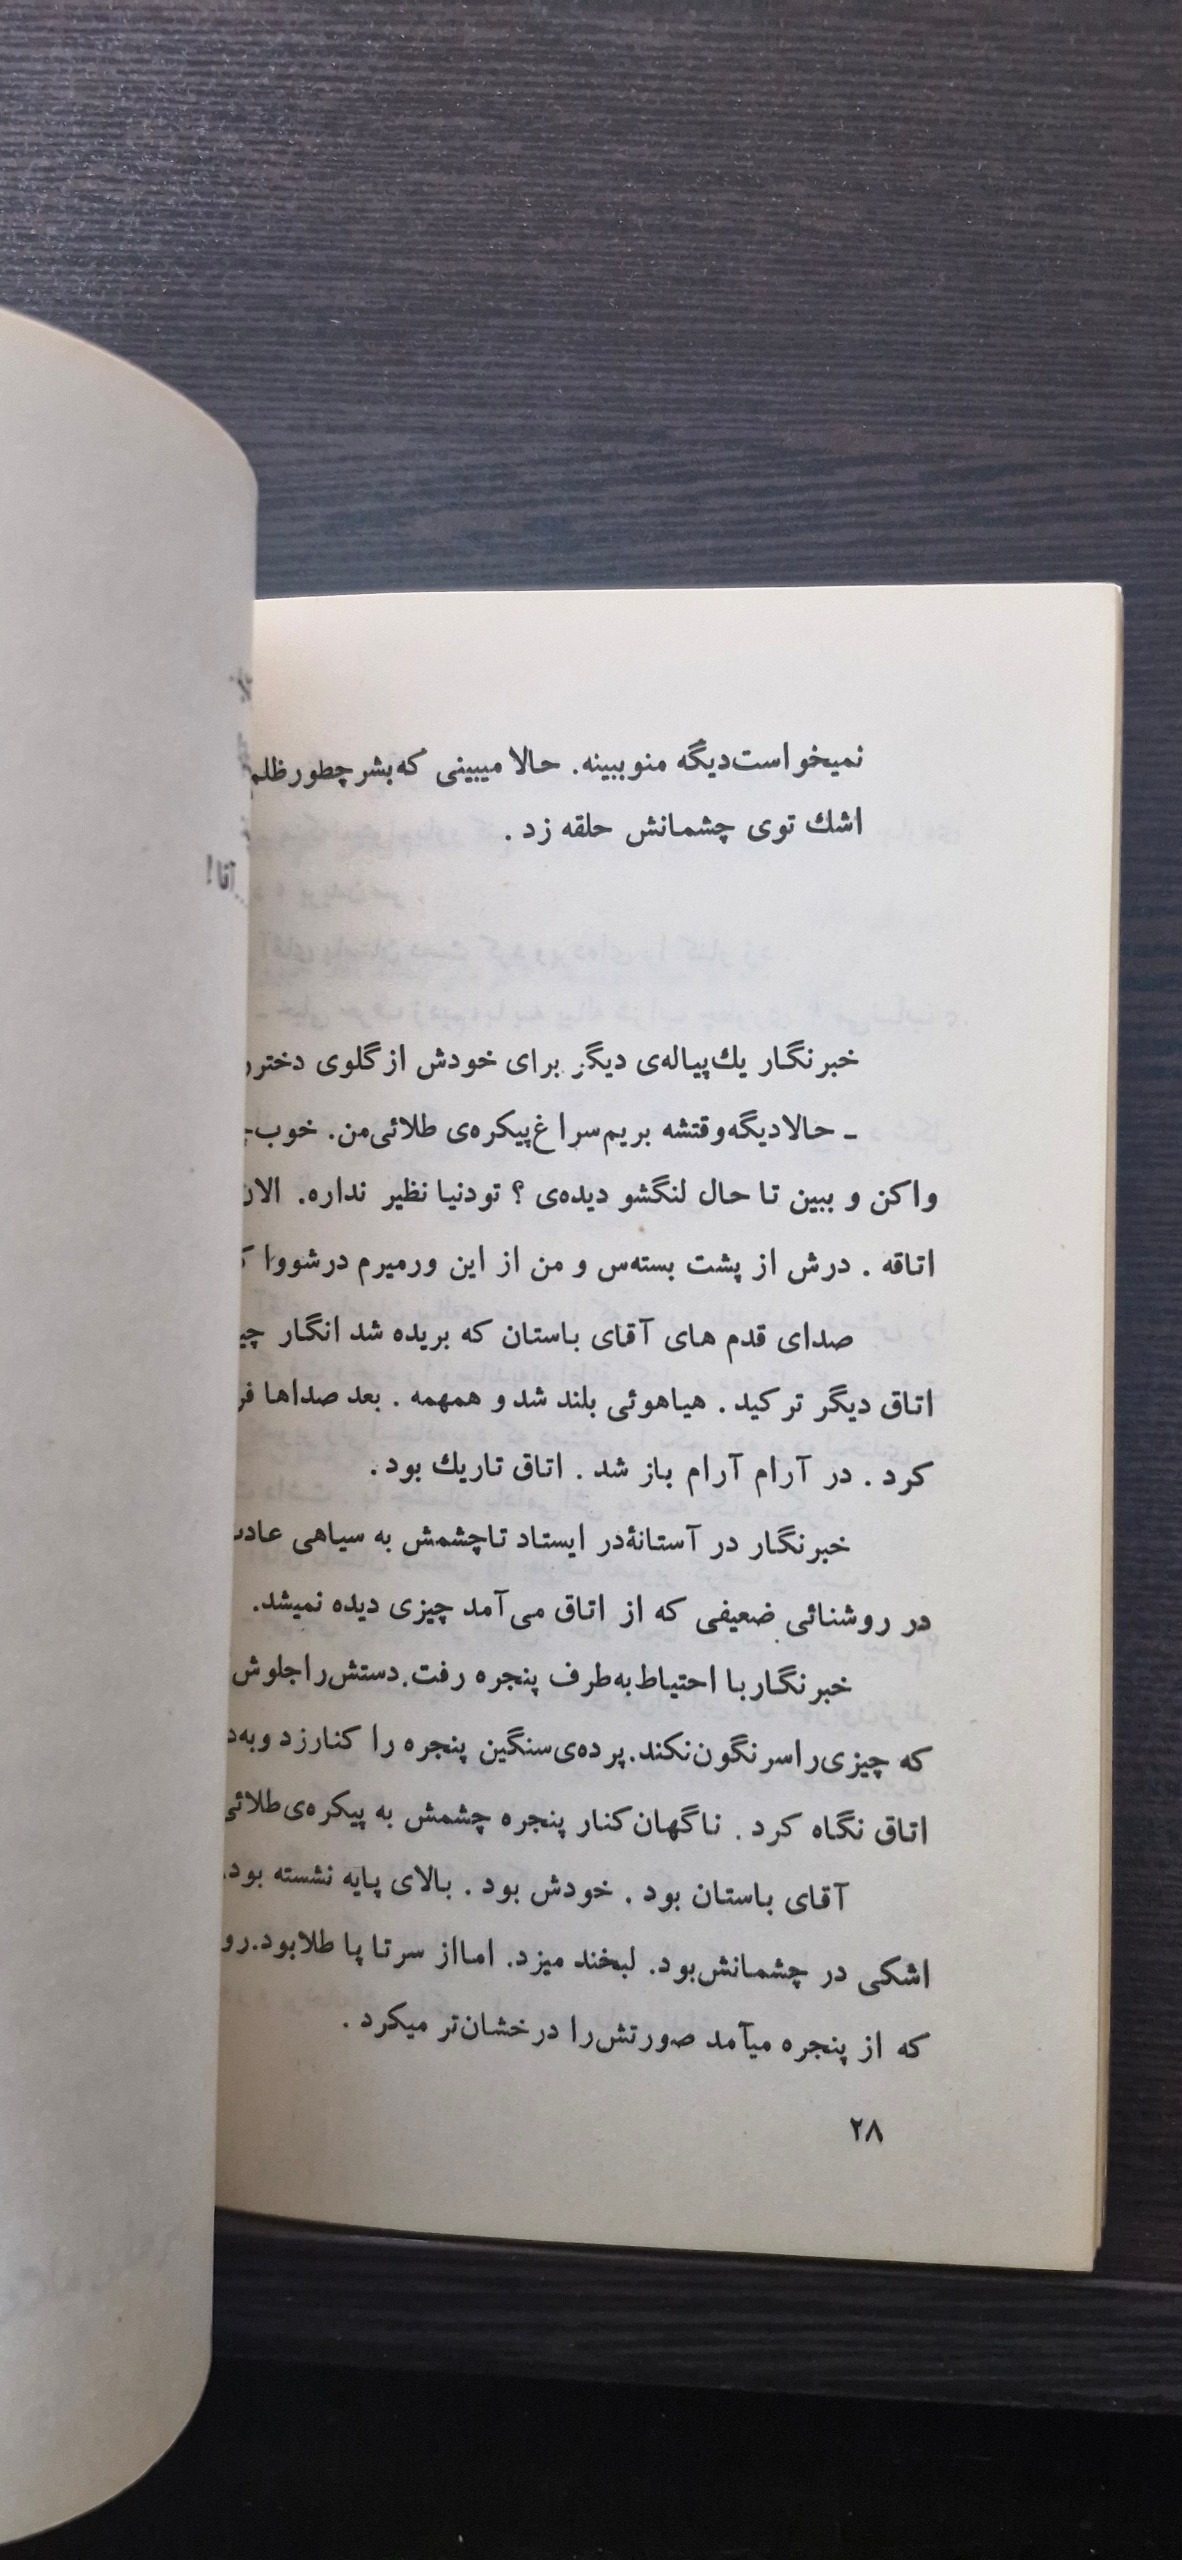 نمیخواست دیگه منو ببینه. حالا میبینی که بشر چطور ظلم
اشك توی چشمانش حلقه زد .
آنا!
خبرنگار یك پیاله‌ی دیگر برای خودش از گلوی دختر
ـ حالا دیگه وقتشه بریم سراغ پیکره‌ی طلائی من. خوب
واکن و ببین تا حال لنگشو دیده‌ی ؟ تو دنیا نظیر نداره. الان
اتاقه . درش از پشت بسته‌س و من از این ور میرم درشو وا
صدای قدم های آقای باستان که بریده شد انگار
اتاق دیگر ترکید . هیاهوئی بلند شد و همهمه . بعد صداها
کرد . در آرام آرام باز شد . اتاق تاریك بود .
خبرنگار در آستانهٔ در ایستاد تا چشمش به سیاهی
در روشنائی ضعیفی که از اتاق می آمد چیزی دیده نمیشد.
خبرنگار با احتیاط به طرف پنجره رفت. دستش را جلوش
که چیزی را سرنگون نکند. پرده‌ی سنگین پنجره را کنار زد و
اتاق نگاه کرد . ناگهان کنار پنجره چشمش به پیکره‌ی طلائی
آقای باستان بود . خودش بود . بالای پایه نشسته بود.
اشکی در چشمانش بود. لبخند میزد. اما از سر تا پا طلا بود.
که از پنجره میآمد صورتش را درخشان تر میکرد .
۲۸